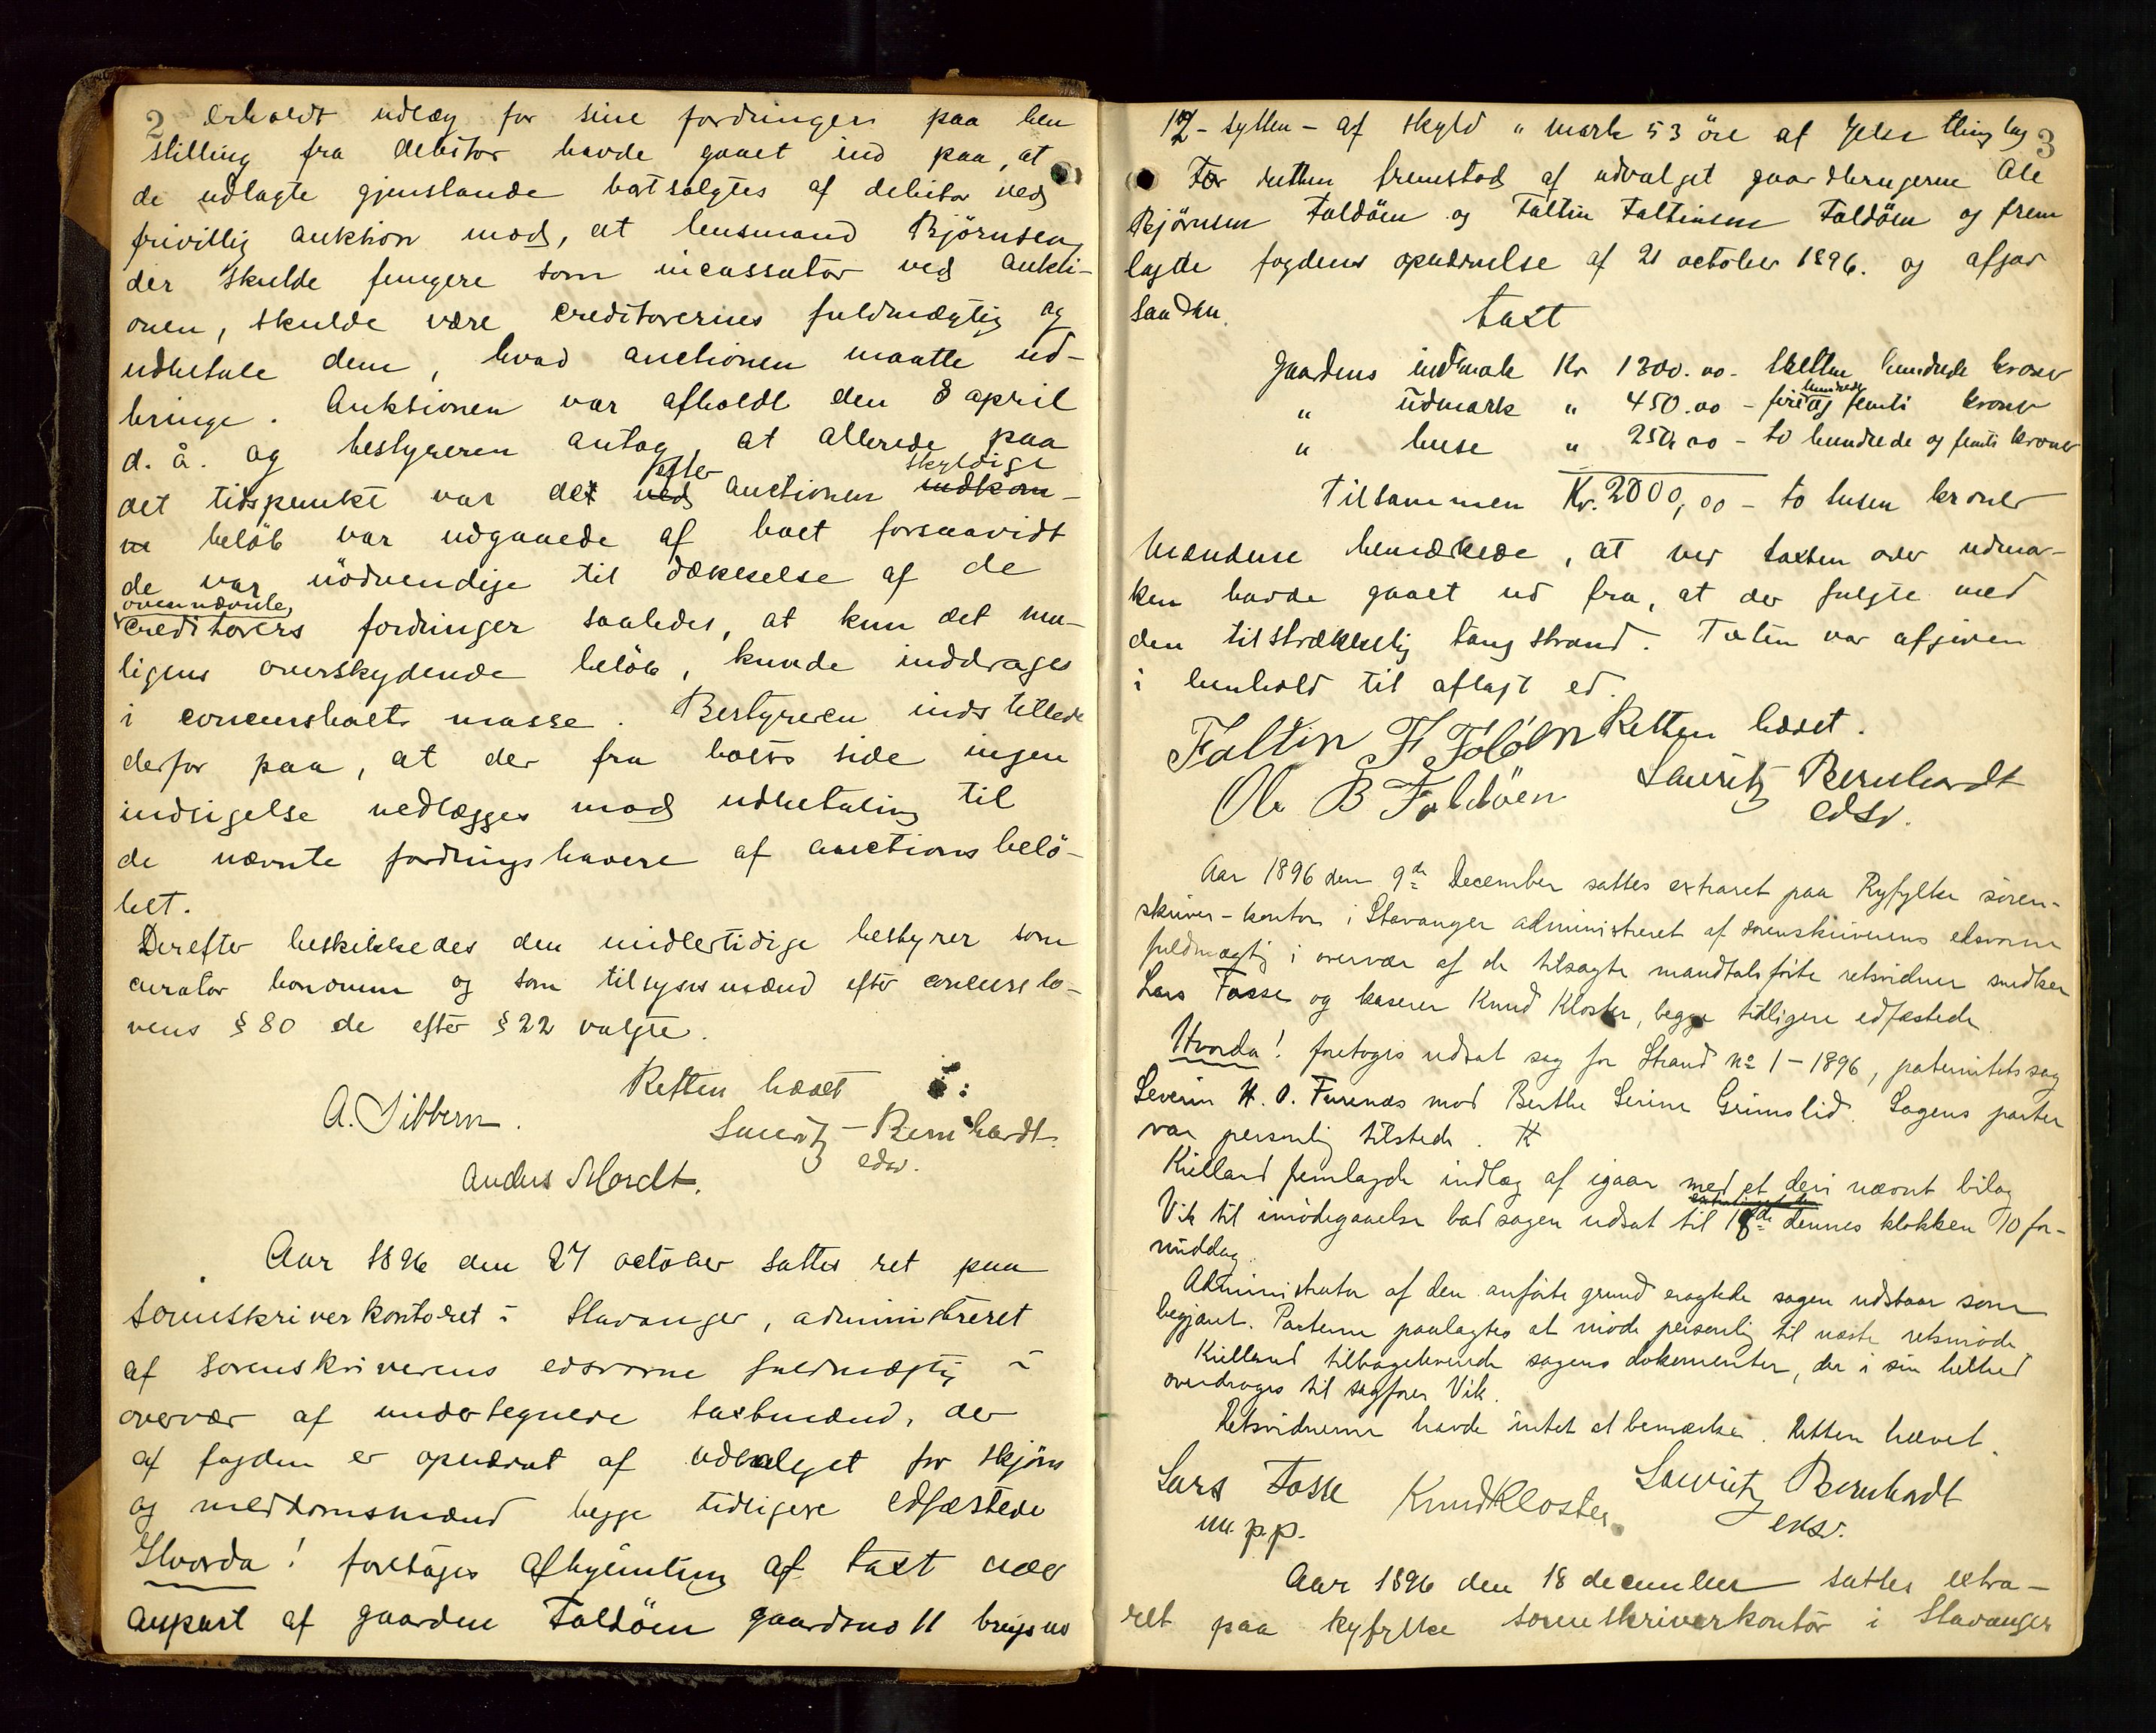 2
erholdt udlæg for sine fordringer paa hen
stilling fra debitor havde gaaet ind paa, at
de udlagte gjenstande bortsolgtes af debitor ved
frivillig auktion mod, at lensmand Björnsen,
der skulde fungere som incassator ved aukti-
onen, skulde være creditorernes fuldmægtig og
udbetale dem, hvad auctionen maatte ud-
bringe. Auktionen var afholdt den 8 april
d. å. og bestyreren antog at allerede paa
efter skyldige
det tidspunkt var det ved auctionen indkom-
ne beløb var udgaaede af boet forsaavidt
de var nödvendige til dækkelse af de
ovennævnte
creditorers fordringer saaledes, at kun det mu-
ligens overskydende belöb, kunde inddrages
i concursboets masse. Bestyreren indstillede
derfor paa, at der fra boets side ingen
indsigelse nedlægges mod udbetaling til
de nævnte fordringshavere af auctionsbelö-
bet.
Derefter beskikkedes den midlertidige bestyrer som
curator bonorum og som tilsynsmænd efter concurslo-
vens § 80 de efter § 22 valgte.
Retten hævet
A. Sibbern. Lauritz Bernhardt.
edsv.
Anders Mordt.
Aar 1896 den 27 october sattes ret paa
sorenskriverkontoret i Stavanger, administreret
af sorenskriverens edsvorne fuldmægtig i
overvær af undertegnede taxtmænd, der
af fogden er opnævnt af udvalget for skjöns
og meddomsmænd begge tidligere edfæstede
Hvorda! foretoges afhjemling af taxt over
anpart af gaarden Foldöen gaardsno 11 brugsno
3
12 - sytten - af skyld " mark 53 öre af Jelse thinglag
For retten fremstod af udvalget gaardbrugerne Ole
Björnsen Foldöen og Faltin Faltinsen Foldöen og frem
lagde fogdens opnævnelse af 21 october 1896. og afgav
saadan
taxt
Gaardens indmark Kr 1300.00 - tretten hundrede kroner
hundrede
" udmark " 450.00 - fire og femti kroner
" huse " 250,00 - to hundrede og femti kroner
Tilsammen Kr. 2000,00 - to tusen kroner
Mændene bemærkede, at ved taxten over udmar-
ken havde gaaet ud fra, at der fulgte med
den tilstrækkelig tangstrand. Taxten var afgiven
i henhold til aflagt ed.
Faltin F Foldöen Retten hævet.
Ole B Foldöen Lauritz Bernhardt
edsv.
Aar 1896 den 9de December sattes extraret paa Ryfylke soren-
skriver-kontor i Stavanger administreret af sorenskriverens edsvorne
fuldmægtig i overvær af de tilsagte mandtalsførte retsvidner snedker
Lars Fosse og kaserer Knud Kloster, begge tidligere edfæstede.
Hvorda! foretoges udsat sag for Strand No 1 - 1896, paternitetssag
Severin H. O. Furenæs mod Berthe Serine Grimslid. Sagens parter
var personlig tilstede.
Kielland fremlagde indlæg af igaar med et deri nævnt bilag
Vik til imødegaaelse bad sagen udsat til 18de dennes klokken 10 for-
middag.
Administrator af den anførte grund eragtede sagen udstaar som
begjært. Parterne paalagtes at møde personlig til næste retsmøde
Kielland tilbageleverede sagens dokumenter, der i sin helhed
overdroges til sagfører Vik.
Retsvidnerne havde intet at bemærke. Retten hævet.
Lars Fosse Knud Kloster Lauritz Bernhardt
m. p.p. edsv.
Aar 1896 den 18 december sattes extra-
ret paa Ryfylke sorenskriverkontor i Stavanger